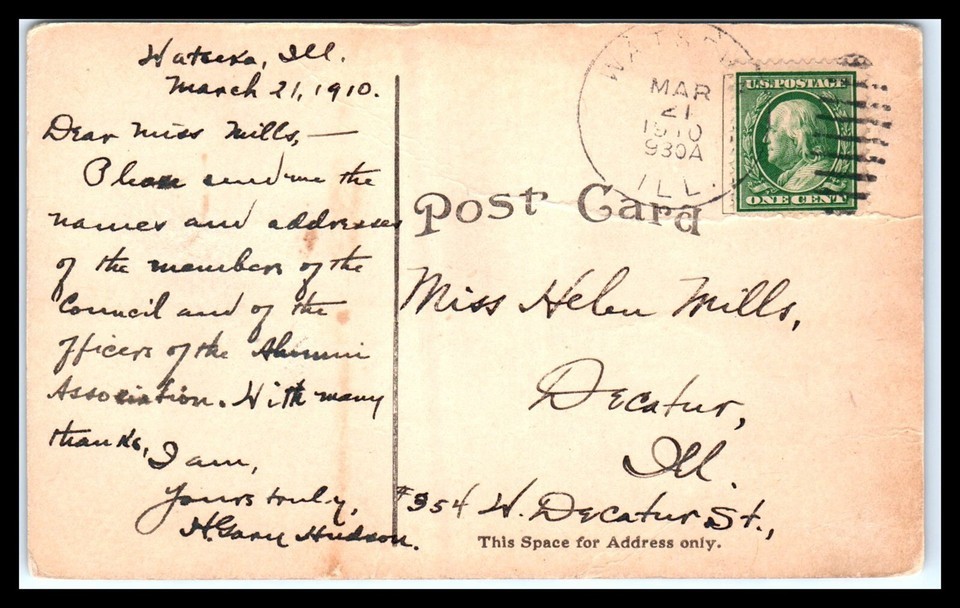 Watseka, Ill.
March 21, 1910.
Dear Miss Mills,—
Please send me the
names and addresses
of the members of the
Council and of the
officers of the Alumni
Association. With many
thanks,
I am,
Yours truly,
H. Gary Hudson.
WATSEK
MAR
21
1910
930A
ILL.
U.S. POSTAGE
ONE CENT
Post Card
Miss Helen Mills,
Decatur,
Ill.
954 W. Decatur St.,
This Space for Address only.